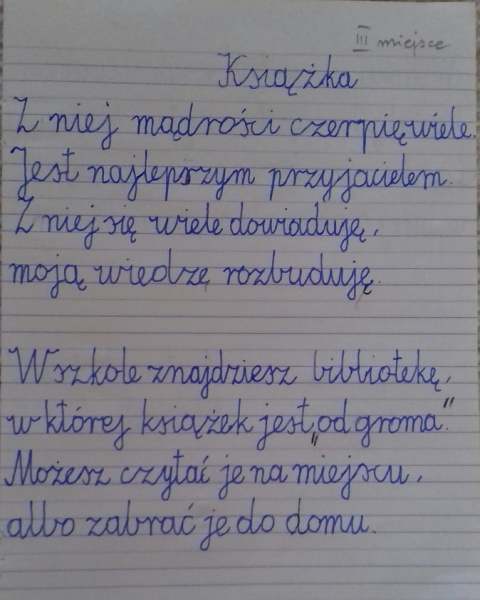 III miejsce
Książka
Z niej mądrości czerpię wiele.
Jest najlepszym przyjacielem.
Z niej się wiele dowiaduję,
moją wiedzę rozbuduję.
W szkole znajdziesz bibliotekę,
w której książek jest „od groma”.
Możesz czytać je na miejscu,
albo zabrać je do domu.